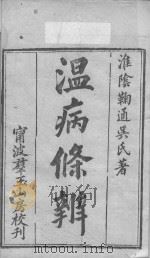 淮陰鞠通吳氏著
溫病條辨
甯波羣玉山房校刊